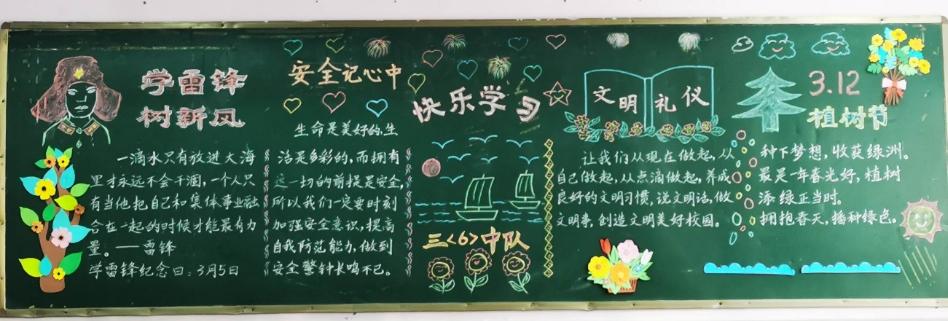 学雷锋
树新风
一滴水只有放进大海
里才永远不会干涸，一个人只
有当他把自己和集体事业融
合在一起的时候才能最有力
量。——雷锋
学雷锋纪念日：3月5日
安全记心中
生命是美好的，生
活是多彩的，而拥有
这一切的前提是安全，
所以我们一定要时刻
加强安全意识，提高
自我防范能力，做到
安全警钟长鸣不已。
快乐学习
三<6>中队
文明礼仪
让我们从现在做起，从
自己做起，从点滴做起，养成
良好的文明习惯，说文明话，做
文明事，创造文明美好校园。
3.12
植树节
种下梦想，收获绿洲。
最是一年春光好，植树
添绿正当时。
拥抱春天，播种绿色。